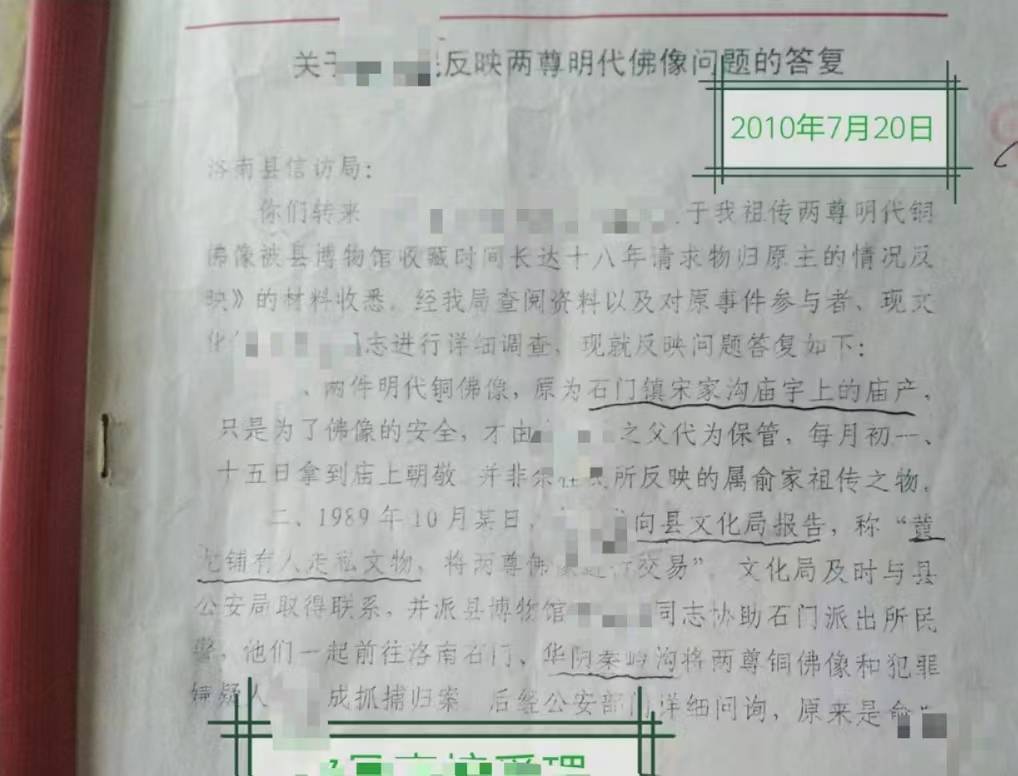 关于 反映两尊明代佛像问题的答复
2010年7月20日
洛南县信访局：
你们转来 于我祖传两尊明代铜
佛像被县博物馆收藏时间长达十八年请求物归原主的情况反
映》的材料收悉。经我局查阅资料以及对原事件参与者、现文
化 同志进行详细调查，现就反映问题答复如下：
、两件明代铜佛像，原为石门镇宋家沟庙宇上的庙产，
只是为了佛像的安全，才由 之父代为保管，每月初一、
十五日拿到庙上朝敬 并非 所反映的属俞家祖传之物。
二、1989年10月某日， 向县文化局报告，称“黄
龙铺有人走私文物，将两尊佛像进行交易” 文化局及时与县
公安局取得联系，并派县博物馆 同志协助石门派出所民
警，他们一起前往洛南石门、华阴秦岭沟将两尊铜佛像和犯罪
嫌疑人 成抓捕归案 后经公安部门详细问询，原来是俞